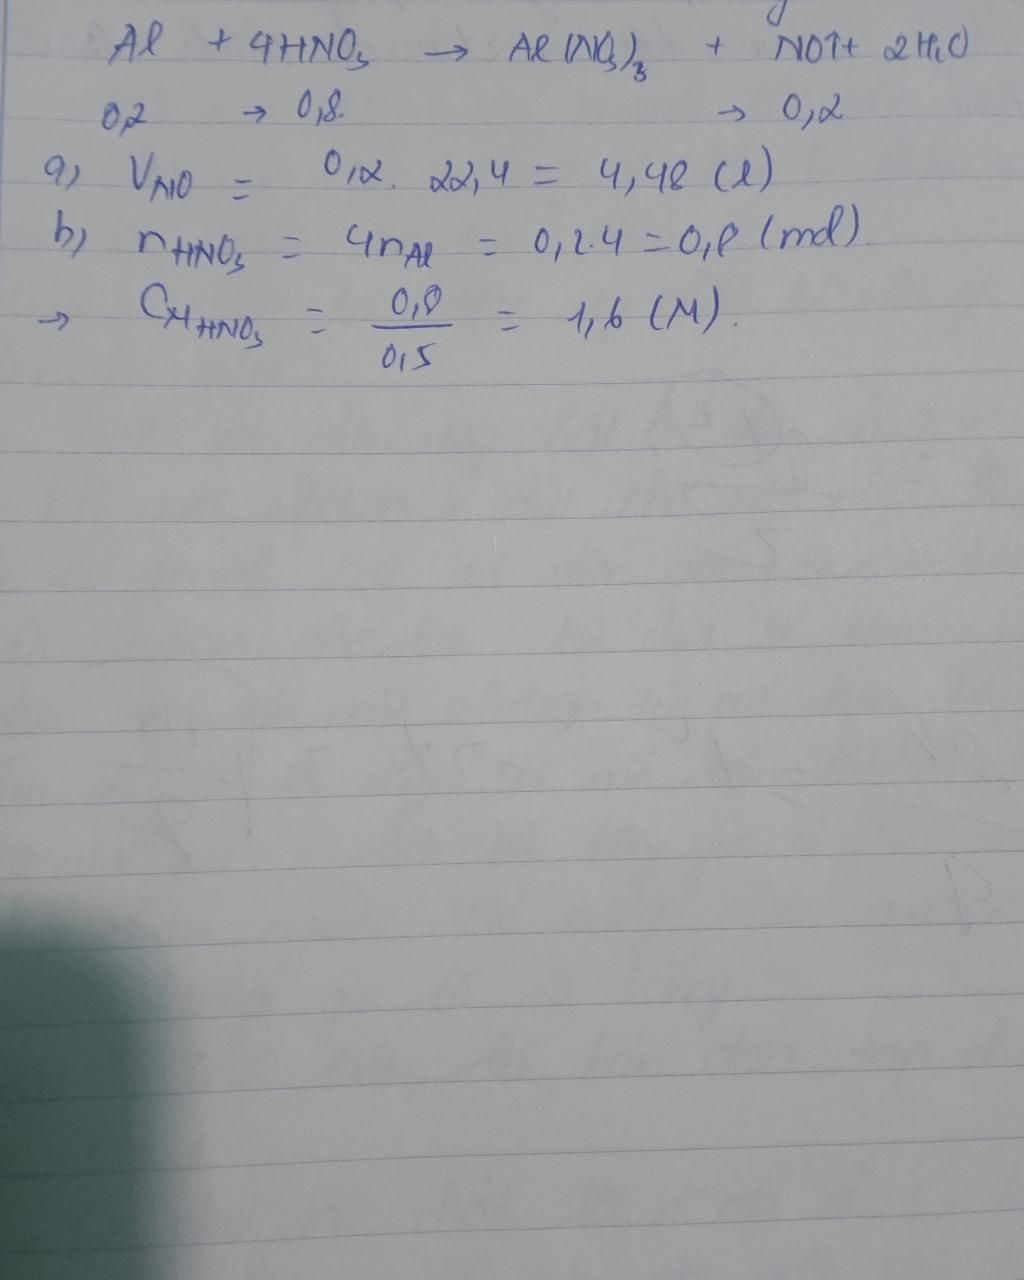 Al + 4HNO₃ → Al(NO₃)₃ + NO↑ + 2H₂O
0,2 → 0,8 → 0,2
a) V_NO = 0,2. 22,4 = 4,48 (l)
b) n_HNO₃ = 4n_Al = 0,2.4 = 0,8 (mol).
→ C_M HNO₃ = 0,8/0,5 = 1,6 (M).